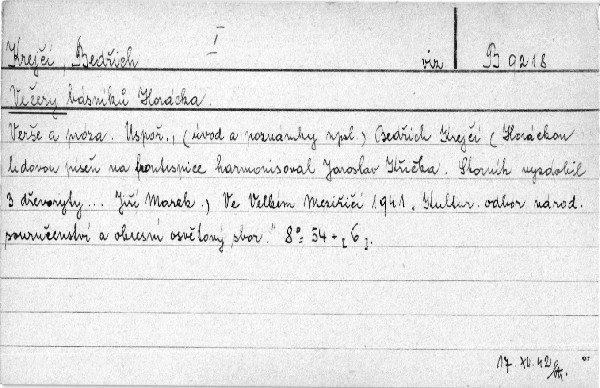 I
Krejčí, Bedřich viz B 9218
Večery básníků Horácka.
Verše a próza. Uspoř., (úvod a poznámky npsl.) Bedřich Krejčí (Horáckou
lidovou píseň na frontispice harmonisoval Jaroslav Křička. Sborník vyzdobil
3 dřevoryty... Jiří Marek.) Ve Velkém Meziříčí 1941. Kultur. odbor národ.
souručenství a obecní osvětový sbor." 8° 54 + [6].
17 XI. 42